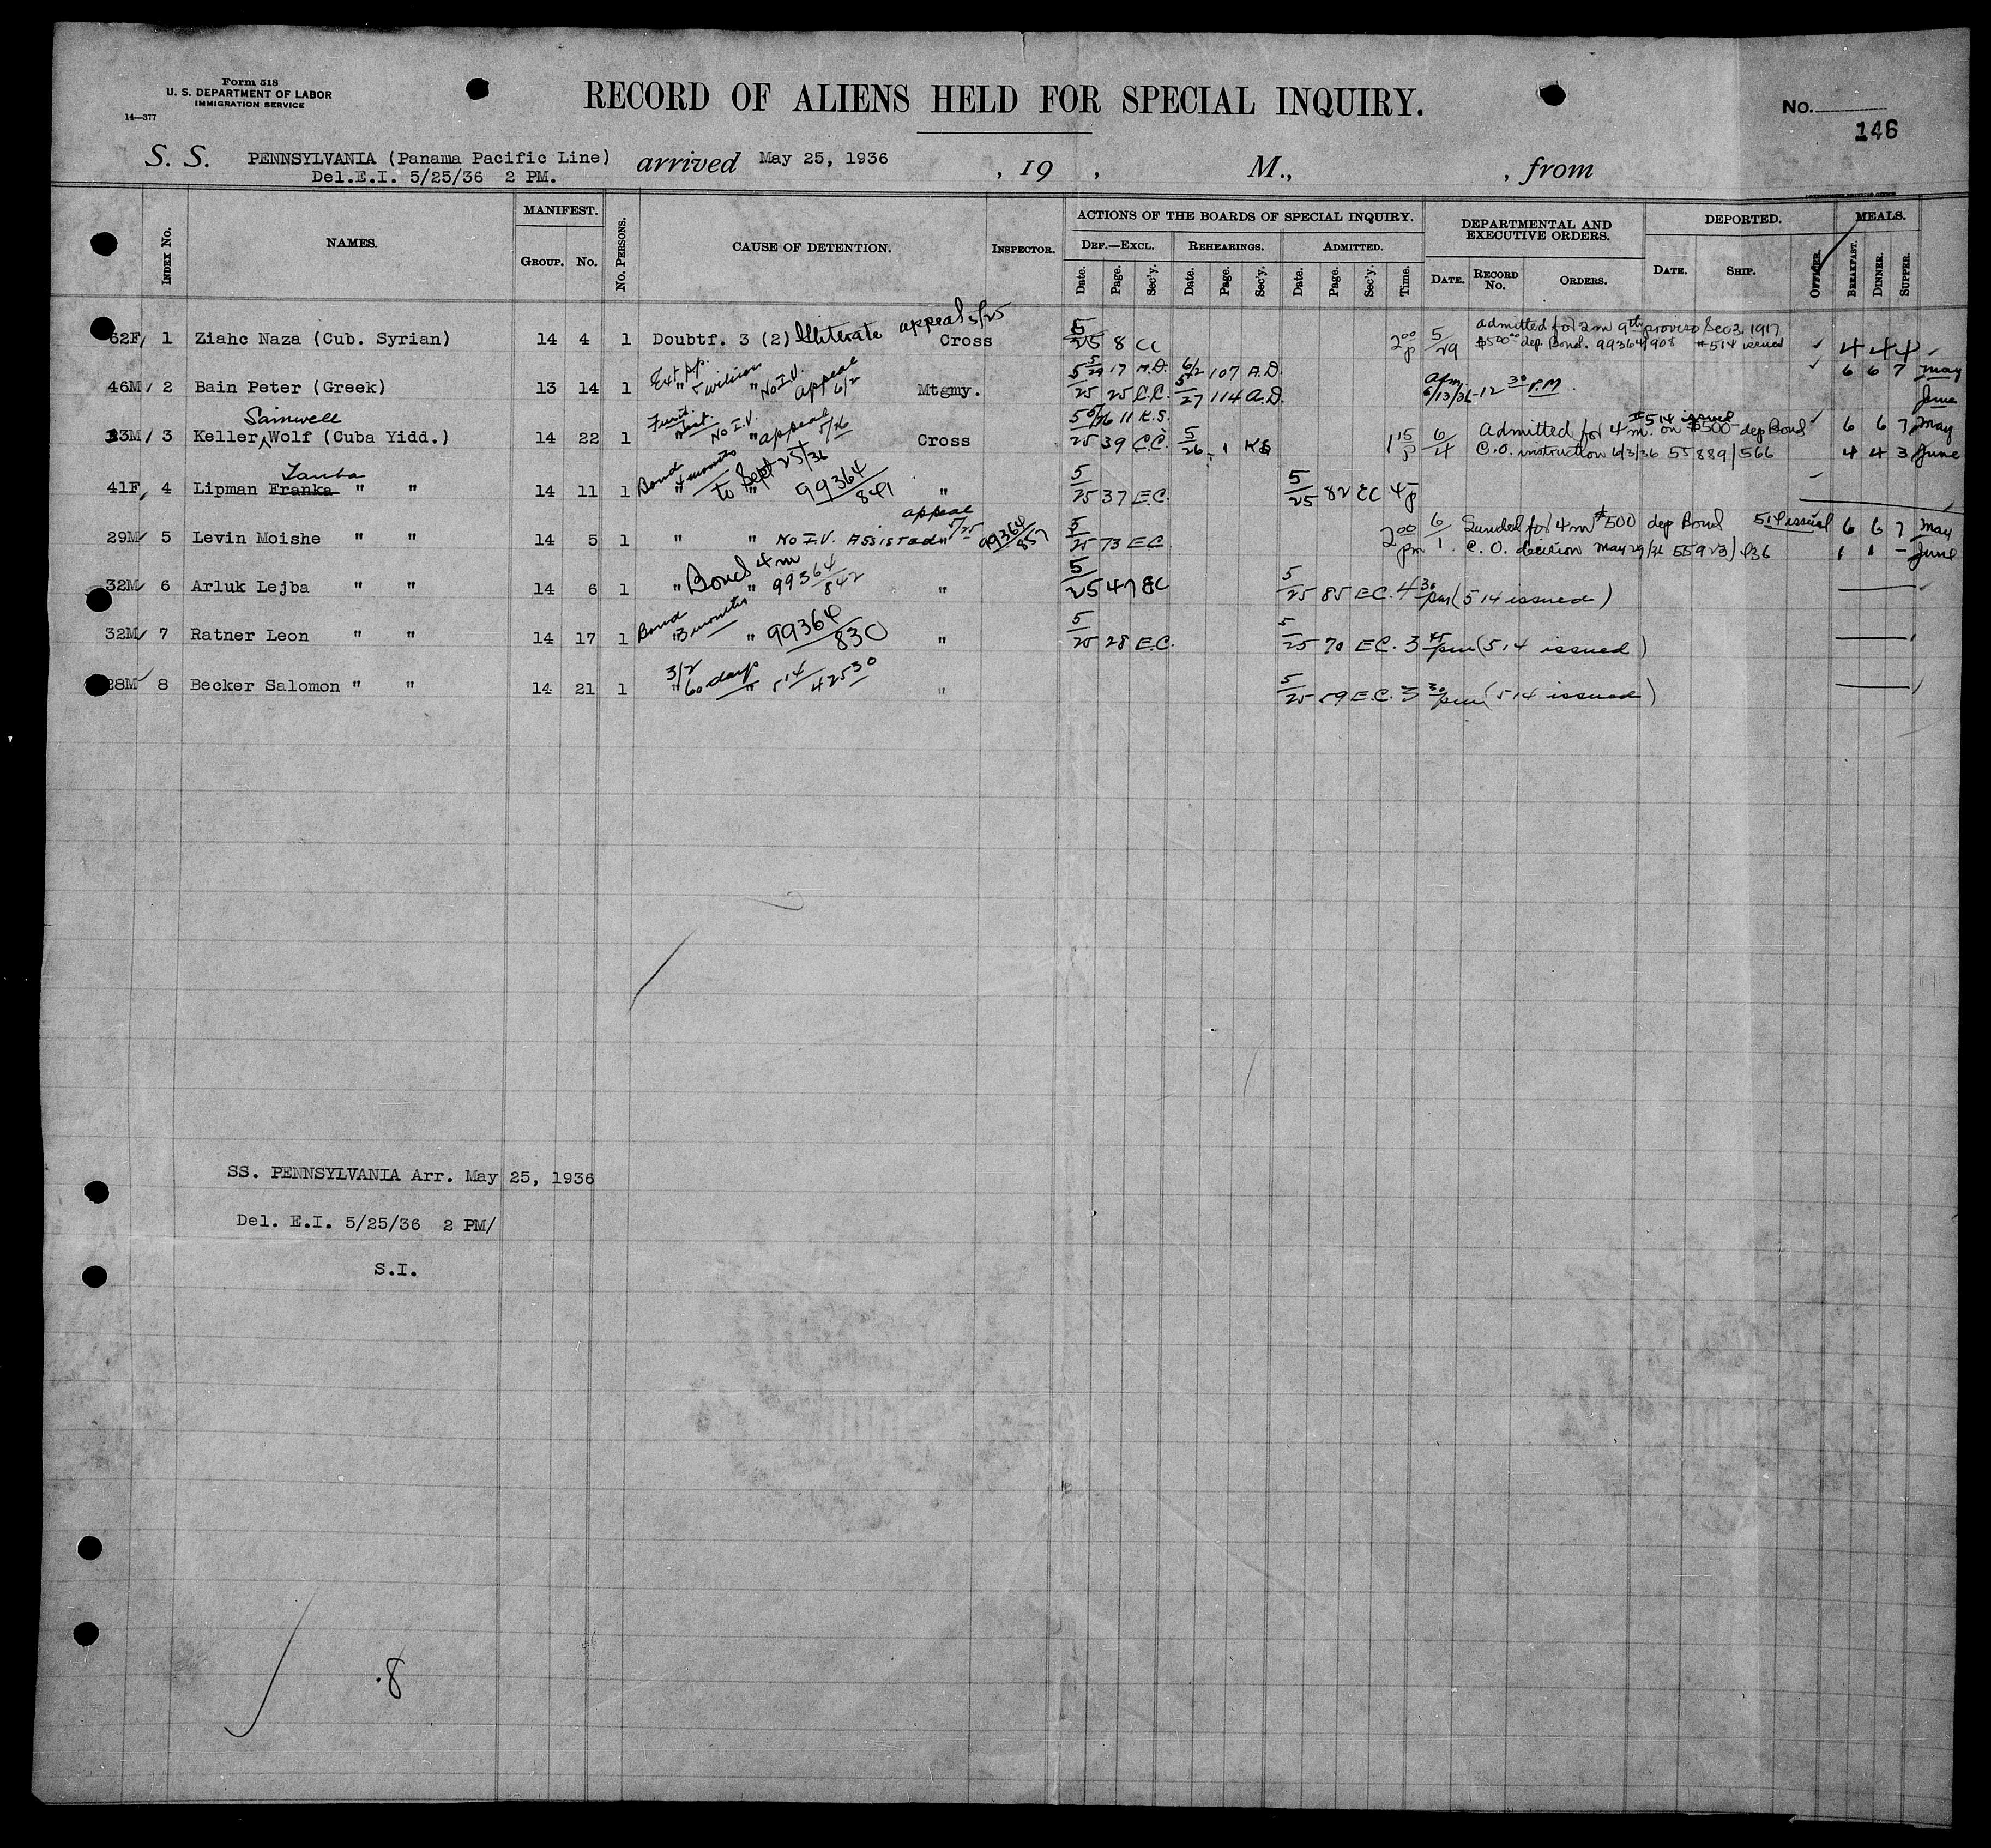 Form 518
U. S. DEPARTMENT OF LABOR
IMMIGRATION SERVICE
14—377
RECORD OF ALIENS HELD FOR SPECIAL INQUIRY.
No.
146
S. S. PENNSYLVANIA (Panama Pacific Line) arrived May 25, 1936 , 19 , M., , from
Del.E.I. 5/25/36 2 PM.
INDEX No. NAMES. MANIFEST. GROUP. No. No. PERSONS. CAUSE OF DETENTION. INSPECTOR.
ACTIONS OF THE BOARDS OF SPECIAL INQUIRY. DEF.—EXCL. REHEARINGS. ADMITTED.
Date. Page. Sec'y. Date. Page. Sec'y. Date. Page. Sec'y. Time.
DEPARTMENTAL AND EXECUTIVE ORDERS. DATE. RECORD No. ORDERS.
DEPORTED. DATE. SHIP. OFFICER. MEALS. BREAKFAST. DINNER. SUPPER.
appeal 5/25 admitted for 2m 9th proviso Sec 3. 1917
62F 1 Ziahc Naza (Cub. Syrian) 14 4 1 Doubtf. 3 (2) Illiterate Cross 5/25 8 CC 2 00 p 5/29 $500 00 dep. Bond. 99364/908 #514 issued 4 4 4
Ext pp. No I.V. appeal 6/2 5/29 17 A.D. 6/2 107 A.D. 6 6 7 May
46M 2 Bain Peter (Greek) 13 14 1 " " Mtgmy. 5/25 25 C.C. 5/27 114 A.D. 6/13/36 - 12 30 P.M. June
Sainwell No I.V. appeal 5/26 5/26 11 K.S. #514 issued
33M 3 Keller Wolf (Cuba Yidd.) 14 22 1 " Cross 25 39 C.C. 5/26 1 KS 1 15 p 6/4 Admitted for 4 m. on $500 dep Bond 6 6 7 May
C.O. instruction 6/3/36 55889/566 4 4 3 June
Tauba Bond 4 months to Sept 25/36
41F 4 Lipman Franka " " 14 11 1 " " 99364/841 " 5/25 37 E.C. 5/25 82 EC 4 p
appeal 5/25
29M 5 Levin Moishe " " 14 5 1 " " No I.V. Assisted " 99364/857 5/25 73 EC 2 00 pm 6/1 for 4 m $500 dep Bond 514 issued 6 6 7 May
C.O. decision May 29/36 55923/836 1 1 - June
Bond 4 m
32M 6 Arluk Lejba " " 14 6 1 " " 99364/842 " 5/25 47 EC 5/25 85 EC. 4 30 pm (514 issued)
Bond 3 months
32M 7 Ratner Leon " " 14 17 1 " " 99364/830 " 5/25 28 E.C. 5/25 70 EC. 3 45 pm (514 issued)
3/2 60 days
28M 8 Becker Salomon " " 14 21 1 " " 514 4253 0 " 5/25 59 E.C. 3 30 pm (514 issued)
SS. PENNSYLVANIA Arr. May 25, 1936
Del. E.I. 5/25/36 2 PM/
S.I.
.8